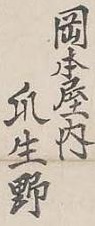 岡本屋内
爪生野